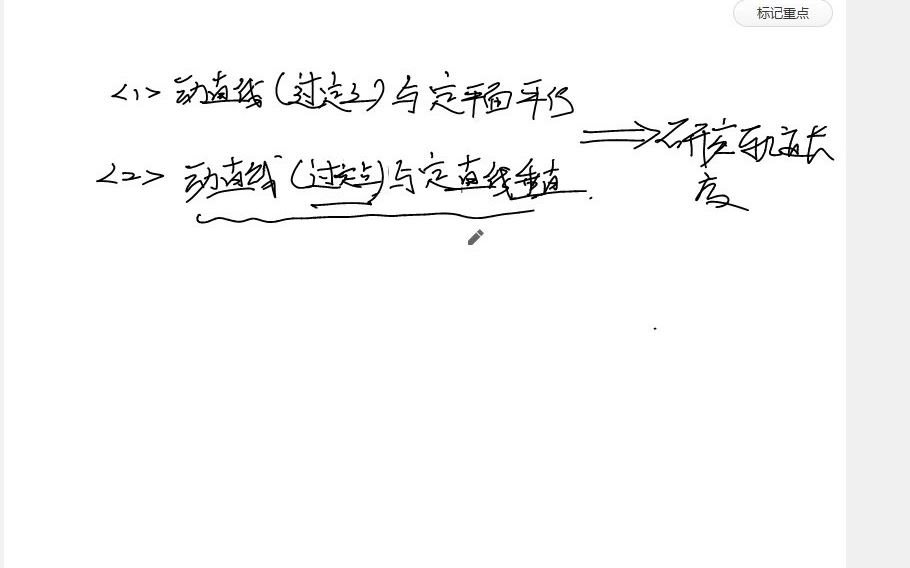 标记重点
<1> 动直线(过定点)与定平面平行
⟹研究轨迹长
<2> 动直线(过定点)与定直线垂直.
度